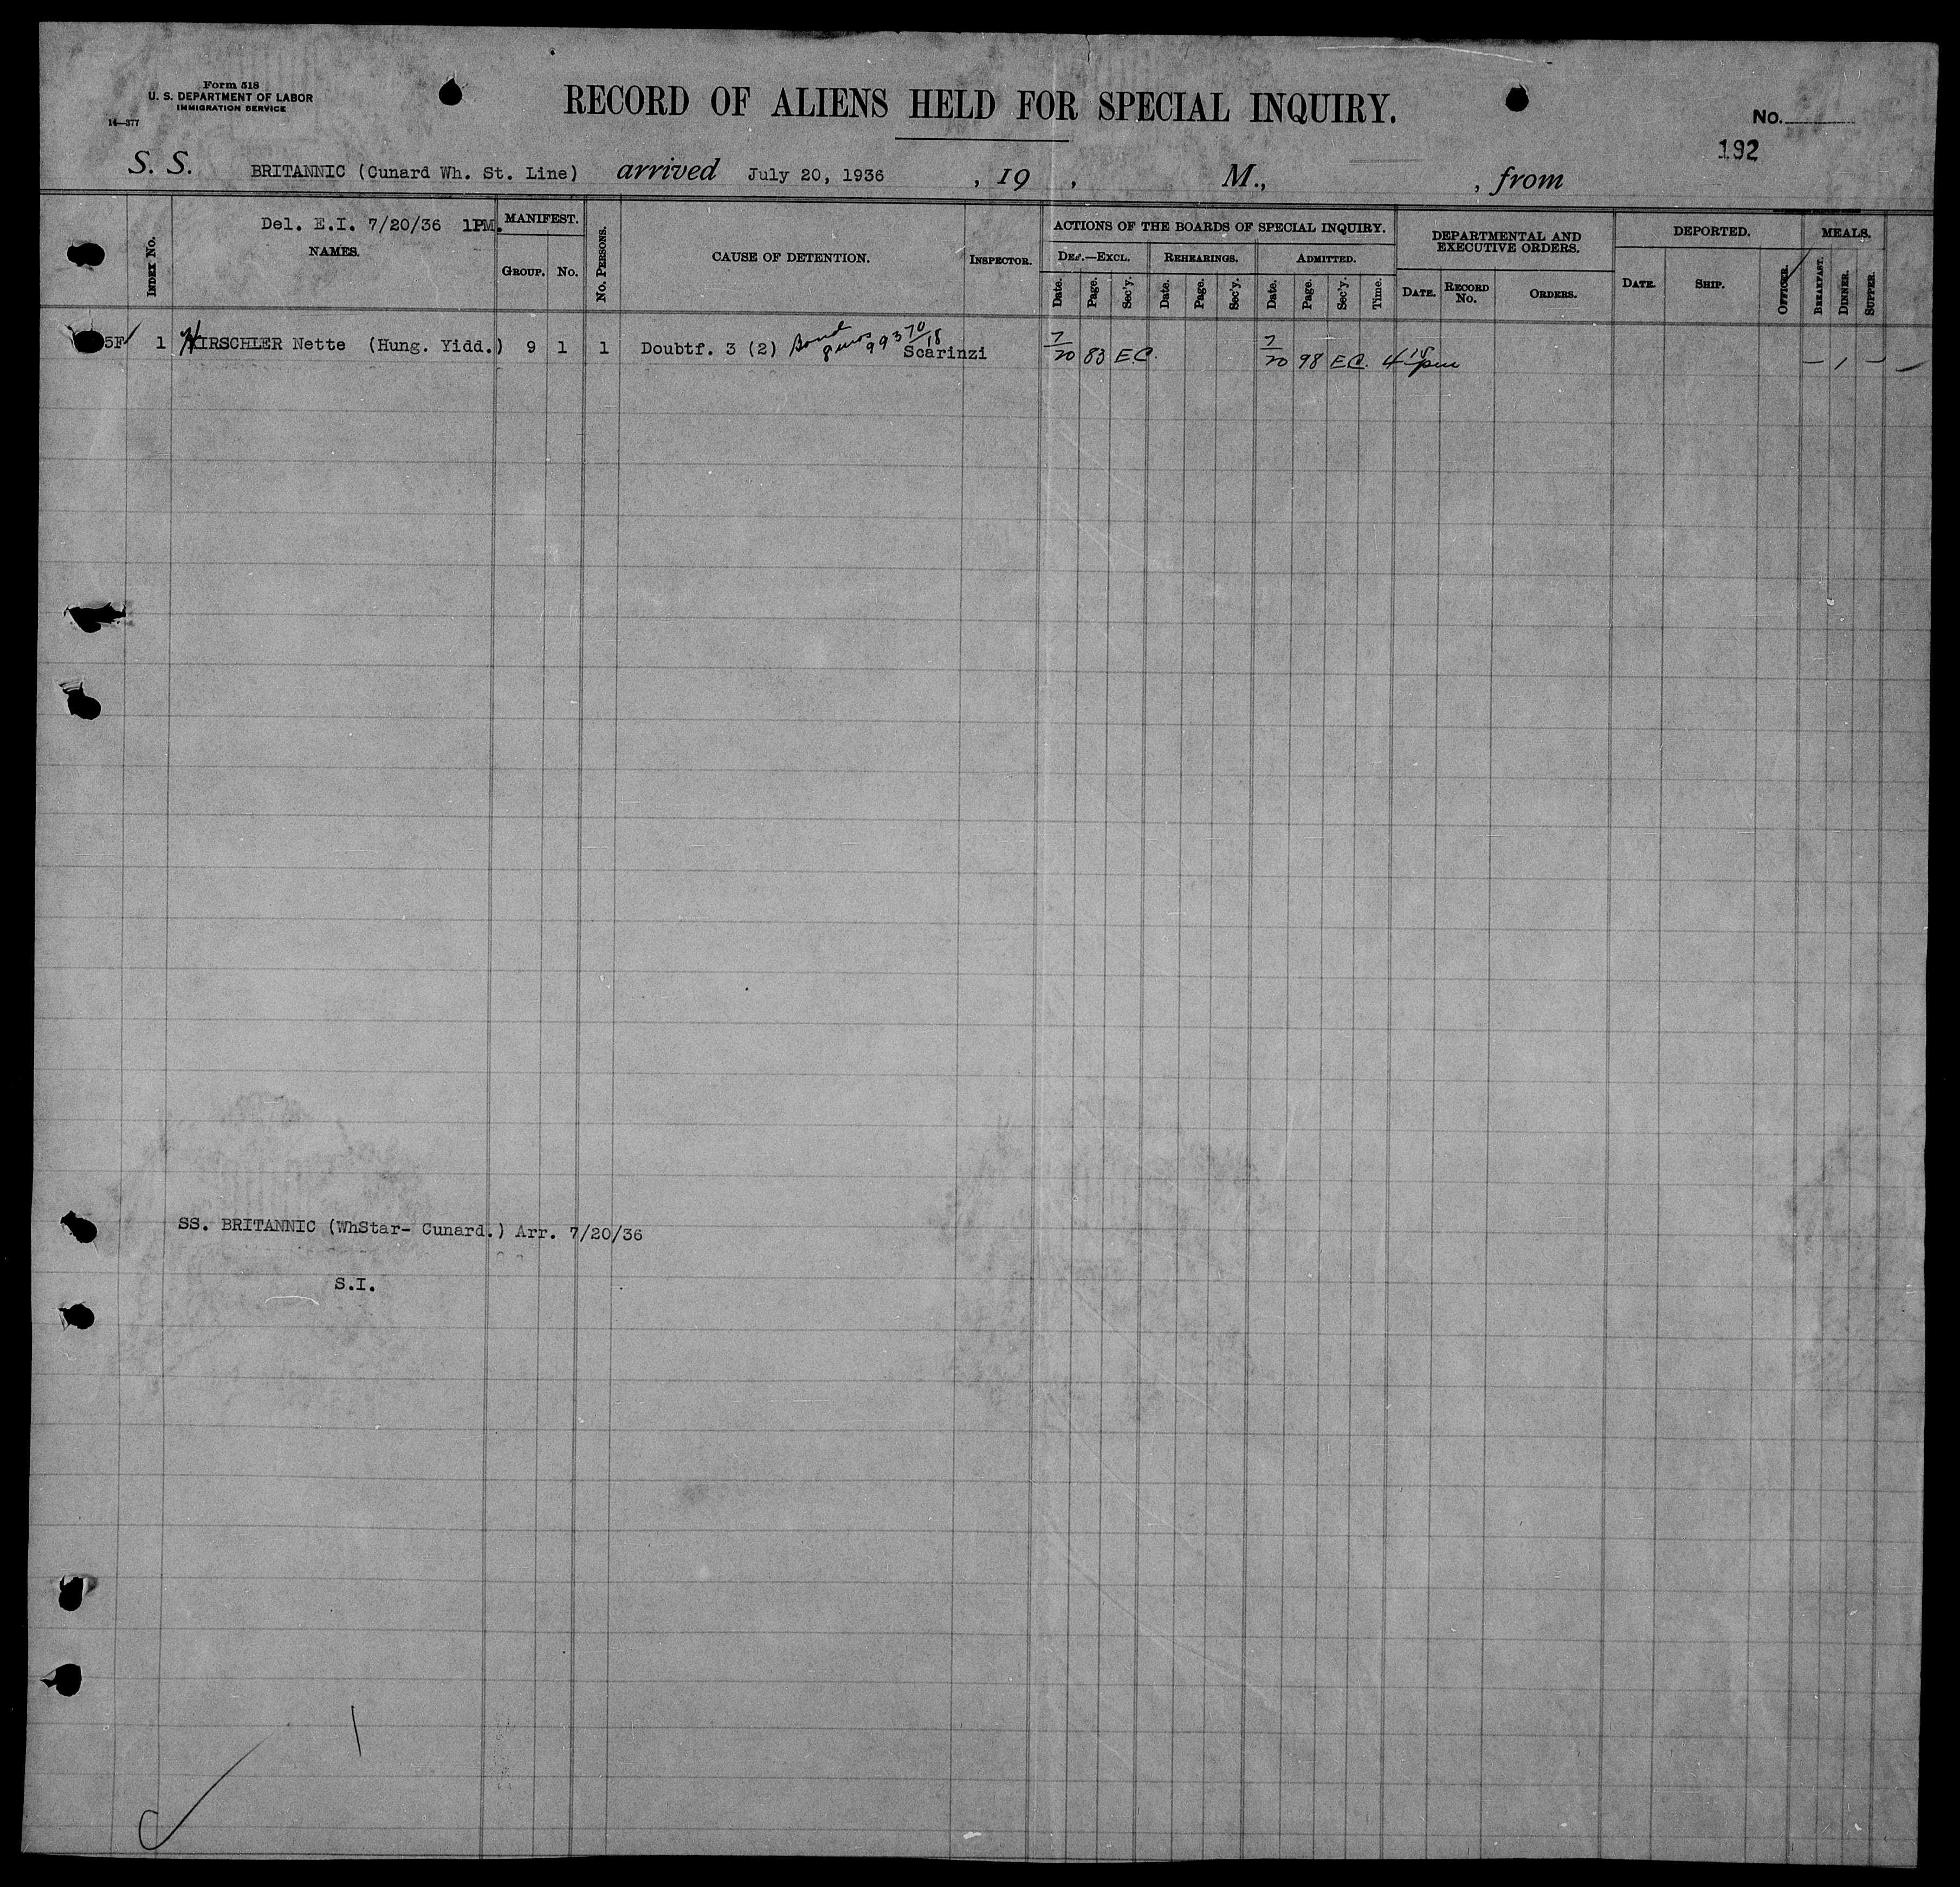 Form 518
U. S. DEPARTMENT OF LABOR
IMMIGRATION SERVICE
14—377
RECORD OF ALIENS HELD FOR SPECIAL INQUIRY.
No.
192
S. S. BRITANNIC (Cunard Wh. St. Line) arrived July 20, 1936 , 19 , M., , from
Del. E.I. 7/20/36 1PM.
INDEX No.
NAMES.
MANIFEST.
GROUP. No.
No. PERSONS.
CAUSE OF DETENTION.
INSPECTOR.
ACTIONS OF THE BOARDS OF SPECIAL INQUIRY.
DEF.—EXCL. REHEARINGS. ADMITTED.
Date. Page. Sec'y. Date. Page. Sec'y. Date. Page. Sec'y. Time.
DEPARTMENTAL AND
EXECUTIVE ORDERS.
DATE. RECORD No. ORDERS.
DEPORTED.
DATE. SHIP. OFFICER.
MEALS.
BREAKFAST. DINNER. SUPPER.
5F 1 HIRSCHLER Nette (Hung. Yidd.) 9 1 1 Doubtf. 3 (2) 993 70/18 Scarinzi 7/20 83 E.C. 7/20 98 E.C. 4 15 pm — 1 —
SS. BRITANNIC (WhStar- Cunard.) Arr. 7/20/36
S.I.